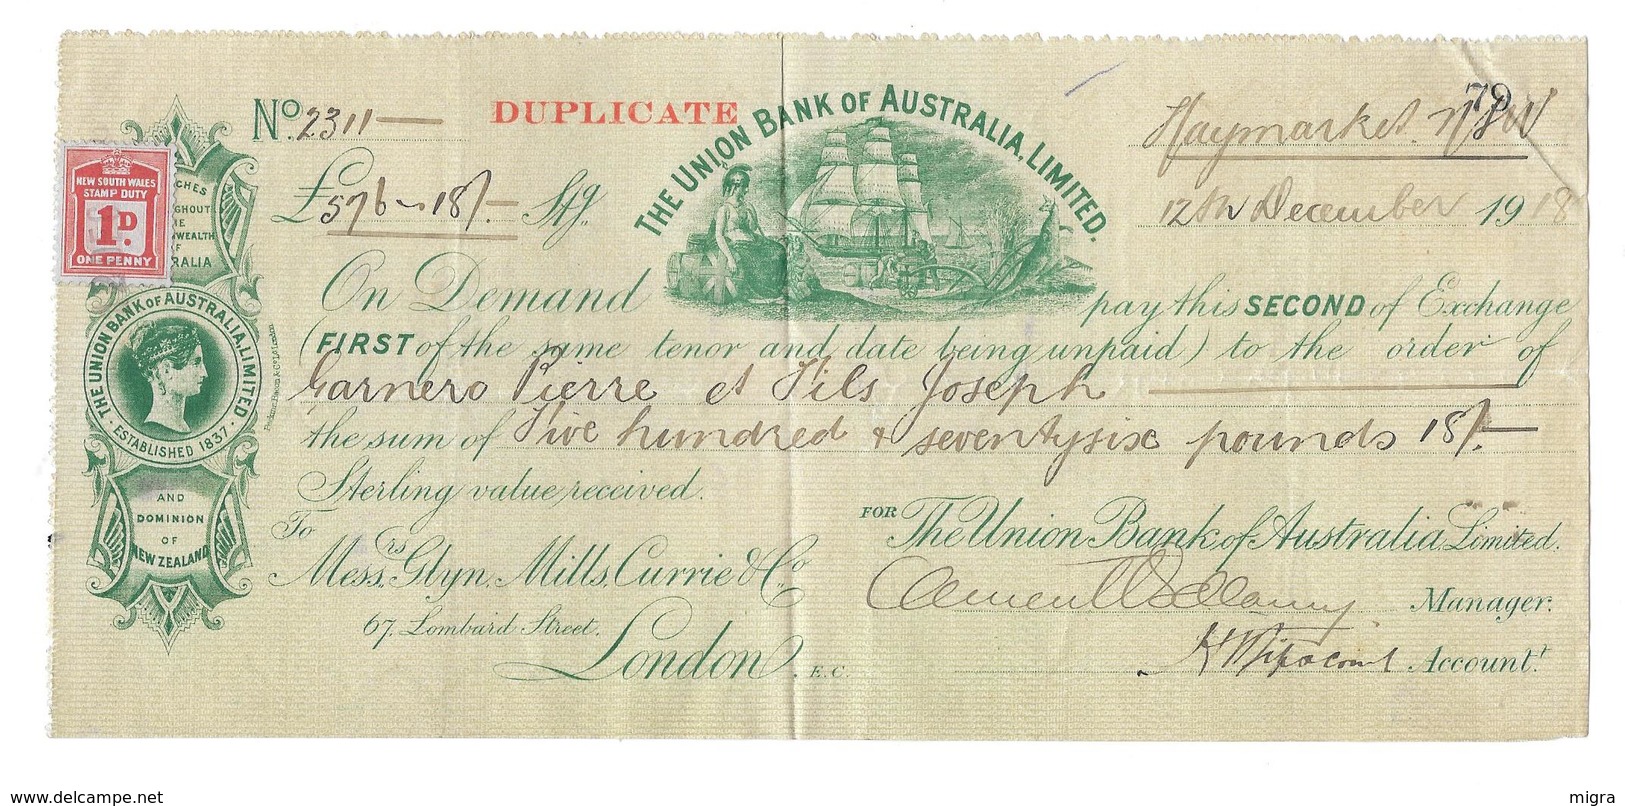 79
No. 2311
DUPLICATE
THE UNION BANK OF AUSTRALIA, LIMITED.
Haymarket NSW
£576 ~ 18/- Stg.
12th December 1918
NEW SOUTH WALES
STAMP DUTY
1D.
ONE PENNY
On Demand pay this SECOND of Exchange
(FIRST of the same tenor and date being unpaid) to the order of
Garnero Pierre et Fils Joseph
the sum of Five hundred & seventysix pounds 18/-
Sterling value received.
THE UNION BANK OF AUSTRALIA, LIMITED
· ESTABLISHED 1837 ·
AND
DOMINION
OF
NEW ZEALAND
To
Messrs. Glyn, Mills, Currie & Co.
67, Lombard Street,
London, E.C.
FOR The Union Bank of Australia Limited.
Manager.
Account.t
delcampe.net
migra